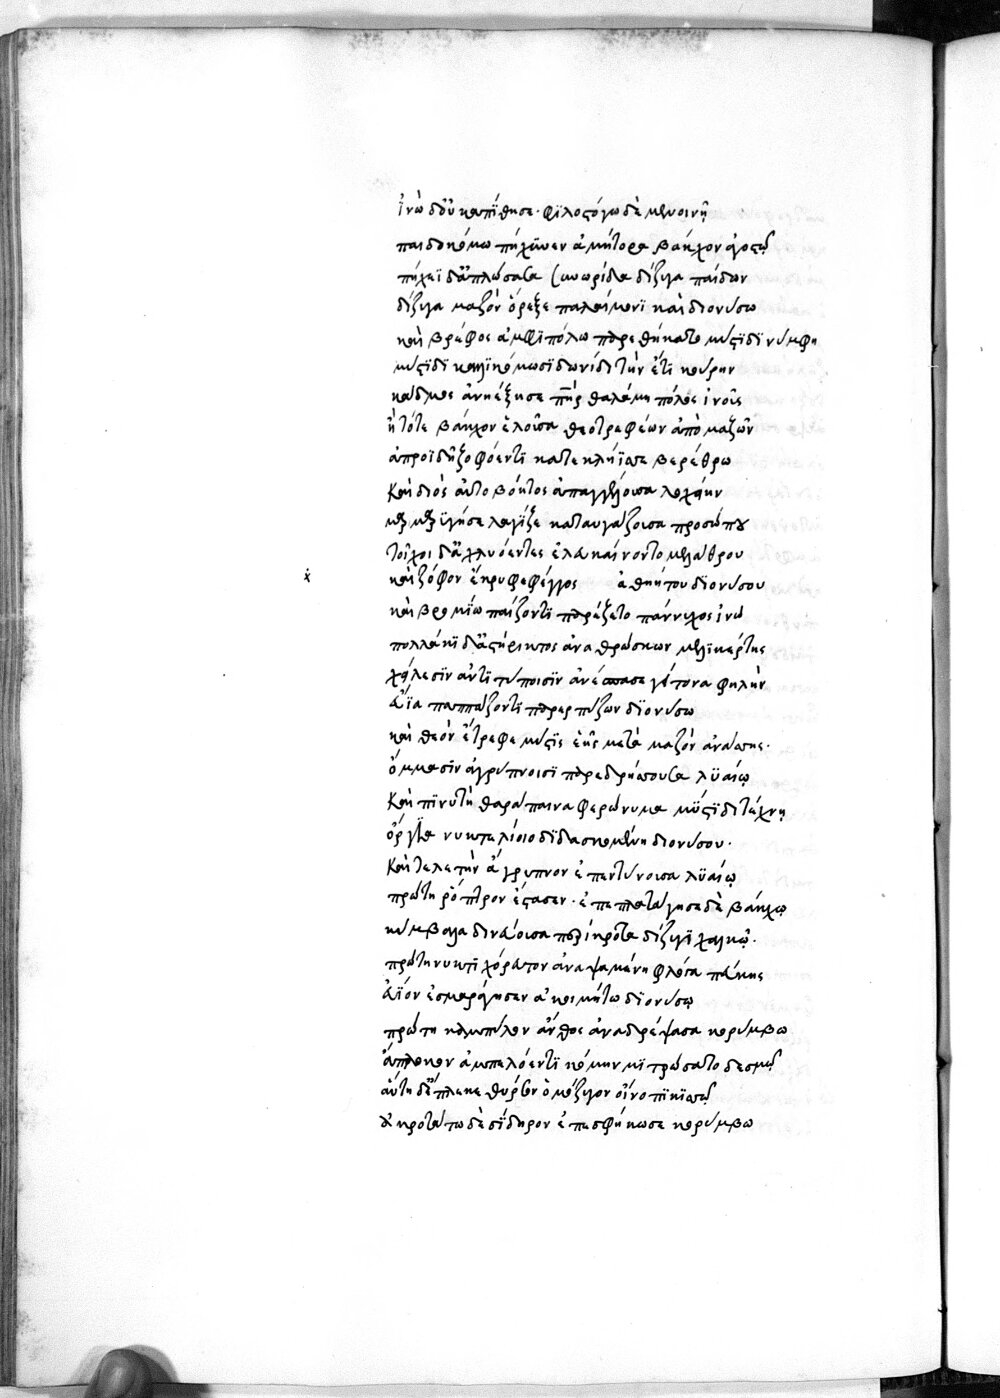 ἰνὼ δ' οὐκ ἀπίθησε· φιλοστόργω δὲ μενοινῇ
παιδοκόμω πήχυνεν ἀμήτορα βάκχον ἀγοστῷ
πήχεϊ δ' ἁπλώσασα συνωρίδα δίζυγα παίδων
δίζυγα μαζὸν ὄρεξε παλαίμονι καὶ διονύσω
καὶ βρέφος ἀμφιπόλω παρεθήκατο μύστιδι νύμφη
μύστιδι καλλικόμω σιδωνίδι τὴν ἔτι κούρην
κάδμος ἀνηέξησε πατὴρ θαλαμηπόλος ἰνοῦς
ἡ τότε βάκχον ἑλοῦσα θεοτρεφέων ἀπὸ μαζῶν
ἀπροϊδῆ ζοφόεντι κατεκλήϊσσε βερέθρω
καὶ διὸς αὐτοβόητος ἀπαγγέλλουσα λοχείην
μαρμαρυγὴ σελάγιζε καταυγάζουσα προσώπου
τοῖχοι δ' ἀχλυόεντες ἐλευκαίνοντο μελάθρου
καὶ ζόφον ἔκρυφε φέγγος ἀθηήτου διονύσου
καὶ βρομίω παίζοντι παρέζετο πάννυχος ἰνώ
πολλάκι δ' ἀστήρικτος ἀναθρώσκων μελικέρτης
χείλεσιν ἀντιτύποισιν ἀνέσπασε γείτονα φηλὴν
εὔϊα παππάζοντι παρερπύζων διονύσω
καὶ θεὸν ἔτρεφε μύστις ἑῆς μετὰ μαζὸν ἀνάσσης·
ὄμμασιν ἀγρύπνοισι παρεδρήσσουσα λυαίῳ
καὶ πινυτὴ θεράπαινα φερώνυμα μύστιδι τέχνη
ὄργια νυκτελίοιο διδασκομένη διονύσου·
καὶ τελετὴν ἄγρυπνον ἐπεντύνουσα λυαίῳ
πρώτη ῥόπτρον ἔσεισεν· ἐπεπλατάγησε δὲ βάκχῳ
κύμβαλα δινεύουσα περίκροτα δίζυγι χαλκῷ·
πρώτη νυκτιχόρευτον ἀναψαμένη φλόγα πεύκης
εὔϊον ἐσμαράγησεν ἀκοιμήτω διονύσῳ
πρώτη καμπύλον ἄνθος ἀναδρέψασα κορύμβω
ἄπλοκον ἀμπελόεντι κόμην μιτρώσατο δεσμῷ
αὐτὴ δ' ἔπλεκε θύρσον ὁμόζυγον οἴνοπι κισσῷ
ἀκροτάτω δὲ σίδηρον ἐπεσφήκωσε κορύμβω